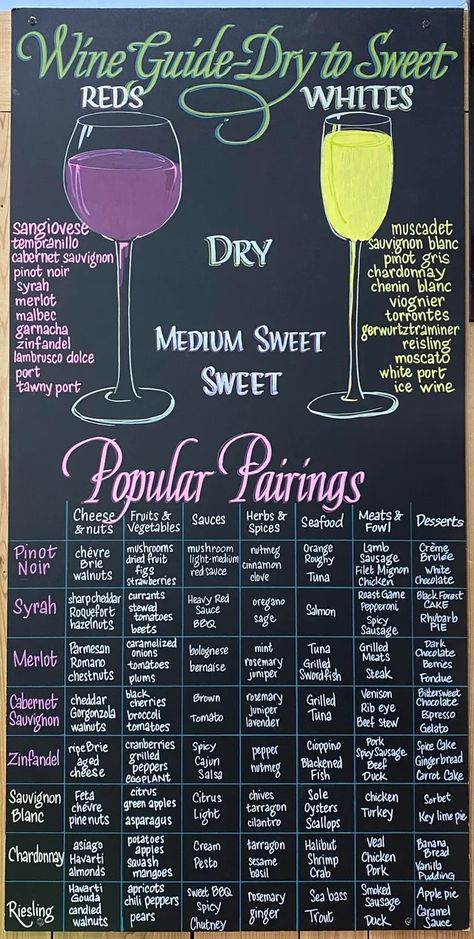 Wine Guide-Dry to Sweet
REDS
WHITES
sangiovese
tempranillo
cabernet sauvignon
pinot noir
syrah
merlot
malbec
garnacha
zinfandel
lambrusco dolce
port
tawny port
DRY
MEDIUM SWEET
SWEET
muscadet
sauvignon blanc
pinot gris
chardonnay
chenin blanc
viognier
torrontes
gerwurtztraminer
reisling
moscato
white port
ice wine
Popular Pairings
Cheese
& nuts
Fruits &
Vegetables
Sauces
Herbs &
Spices
Seafood
Meats &
Fowl
Desserts
Pinot
Noir
chévre
Brie
walnuts
mushrooms
dried fruit
figs
strawberries
mushroom
light-medium
red sauce
nutmeg
cinnamon
clove
Orange
Roughy
Tuna
Lamb
Sausage
Filet Mignon
Chicken
Crème
Brulde
White
Chocolate
Syrah
sharp cheddar
Roquefort
hazelnuts
currants
stewed
tomatoes
beets
Heavy Red
Sauce
BBQ
oregano
sage
Salmon
Roast Game
Pepperoni
Spicy
Sausage
Black Forest
CAKE
Rhubarb
PIE
Merlot
Parmesan
Romano
chestnuts
caramelized
onions
tomatoes
plums
bolognese
bernaise
mint
rosemary
juniper
Tuna
Grilled
Swordfish
Grilled
Meats
Steak
Dark
Chocolate
Berries
Fondue
Cabernet
Sauvignon
cheddar
Gorgonzola
walnuts
black
cherries
broccoli
tomatoes
Brown
Tomato
rosemary
juniper
lavender
Grilled
Tuna
Venison
Rib eye
Beef Stew
Bittersweet
Chocolate
Espresso
Gelato
Zinfandel
ripe Brie
aged
cheese
cranberries
grilled
peppers
eggplant
Spicy
Cajun
Salsa
pepper
nutmeg
Cioppino
Blackened
Fish
Pork
Spicy Sausage
Beef
Duck
Spice Cake
Gingerbread
Carrot Cake
Sauvignon
Blanc
Feta
chévre
pine nuts
citrus
green apples
asparagus
Citrus
Light
chives
tarragon
cilantro
Sole
Oysters
Scallops
Chicken
Turkey
Sorbet
Key lime pie
Chardonnay
asiago
Havarti
almonds
potatoes
apples
squash
mangoes
Cream
Pesto
tarragon
sesame
basil
Halibut
Shrimp
Crab
Veal
Chicken
Pork
Banana
Bread
Vanilla
Pudding
Riesling
Havarti
Gouda
candied
walnuts
apricots
chili peppers
pears
Sweet BBQ
Spicy
Chutney
rosemary
ginger
Sea bass
Trout
Smoked
Sausage
Duck
Apple pie
Caramel
Sauce